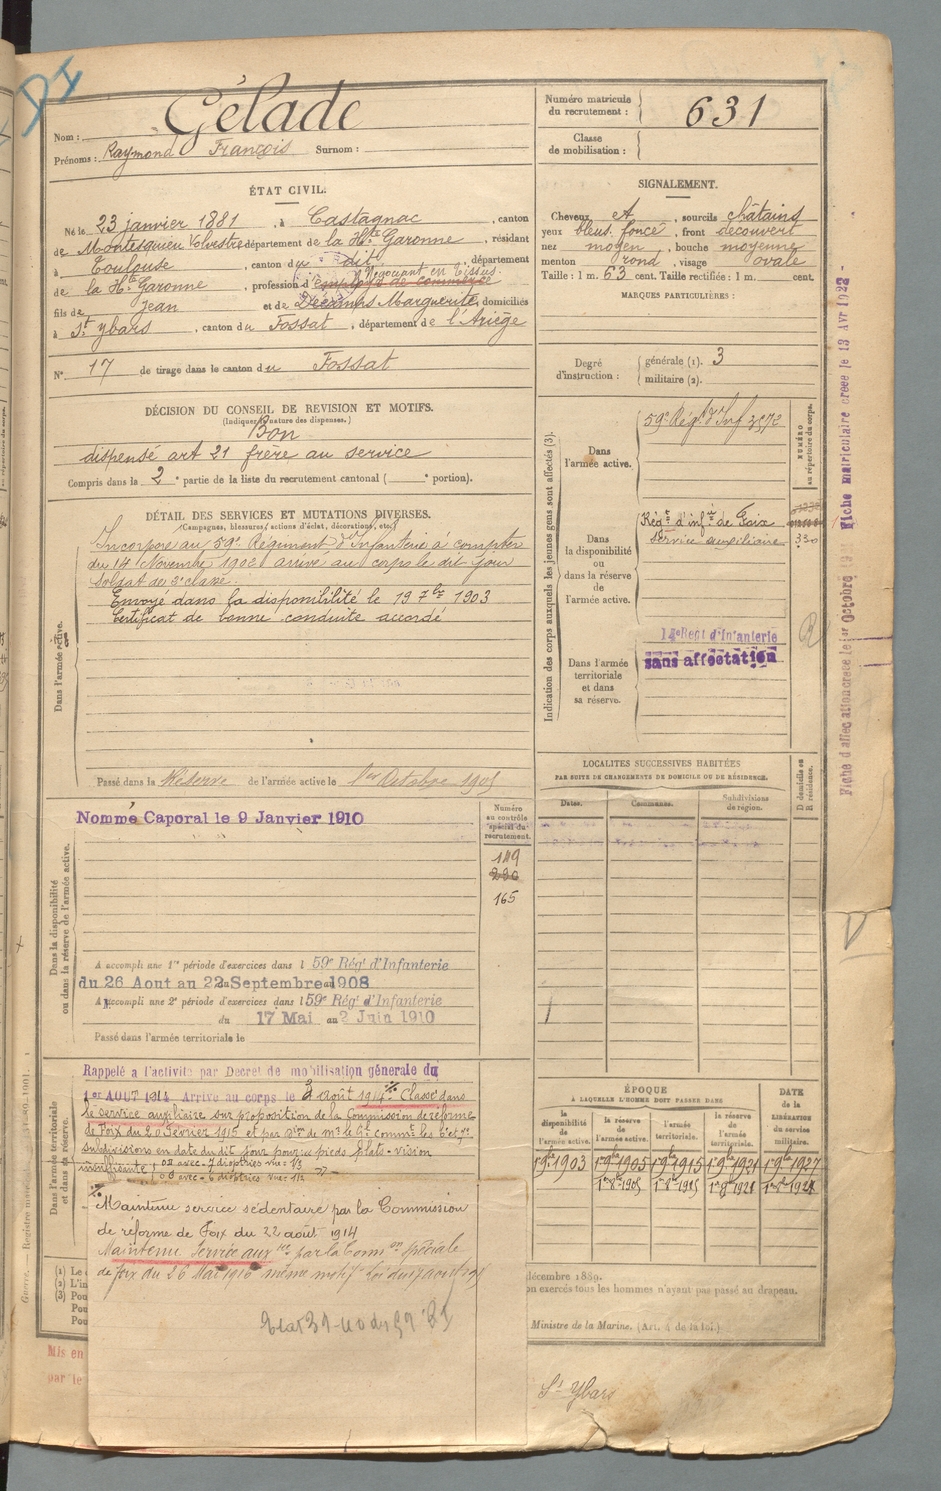 Gélade
Nom :
Prénoms : Raymond François Surnom :
Numéro matricule
du recrutement : 631
Classe
de mobilisation :
ÉTAT CIVIL.
Né le 23 janvier 1881, à Castagnac, canton
de Montesquieu Volvestre département de la Hte Garonne, résidant
à Toulouse, canton du dit, département
Négociant en Tissus
de la Hte Garonne, profession d'employé de commerce
fils de Jean et de Décamps Marguerite, domiciliés
à St Ybars, canton du Fossat, département de l'Ariège
N° 17 de tirage dans le canton du Fossat
SIGNALEMENT.
Cheveux et, sourcils châtains
yeux bleus foncé, front découvert
nez moyen, bouche moyenne
menton rond, visage ovale
Taille : 1 m. 63 cent. Taille rectifiée : 1 m. cent.
MARQUES PARTICULIÈRES :
Degré
d'instruction :
générale (1). 3
militaire (2).
DÉCISION DU CONSEIL DE REVISION ET MOTIFS.
(Indiquer la nature des dispenses.)
Bon
dispensé art 21 frère au service
Compris dans la 2e partie de la liste du recrutement cantonal ( e portion).
DÉTAIL DES SERVICES ET MUTATIONS DIVERSES.
(Campagnes, blessures, actions d'éclat, décorations, etc.)
Dans l'armée active.
Incorporé au 59e Régiment d'Infanterie à compter
du 14 Novembre 1902 arrivé au corps le dit jour
Soldat de 2e classe.
Envoyé dans la disponibilité le 19 7bre 1903
Certificat de bonne conduite accordé
Passé dans la Réserve de l'armée active le 1er Octobre 1905
Indication des corps auxquels les jeunes gens sont affectés (3).
NUMÉRO
au répertoire du corps.
Dans
l'armée active.
59e Régt d'Inf 3572
Dans
la disponibilité
ou
dans la réserve
de
l'armée active.
Régt d'infrie de Foix
Service auxiliaire
330
Dans l'armée
territoriale
et dans
sa réserve.
Regt d'infanterie
sans affectation
LOCALITÉS SUCCESSIVES HABITÉES
PAR SUITE DE CHANGEMENTS DE DOMICILE OU DE RÉSIDENCE.
Dates.
Communes.
Subdivisions
de région.
D domicile ou
R résidence.
Dans la disponibilité
ou dans la réserve de l'armée active.
Nommé Caporal le 9 Janvier 1910
Numéro
au contrôle
spécial du
recrutement.
149
165
A accompli une 1re période d'exercices dans l 59e Rég. d'Infanterie
du 26 Aout au 22 Septembre 1908
A accompli une 2e période d'exercices dans l 59e Rég. d'Infanterie
du 17 Mai au 2 Juin 1910
Passé dans l'armée territoriale le
Dans l'armée territoriale
et dans sa réserve.
Rappelé à l'activité par Decret de mobilisation génerale du
1er AOUT 1914 Arrivé au corps le 3 août 1914. Classé dans
le service auxiliaire sur proposition de la Commission de réforme
de Foix du 20 Février 1915
subdivisions en date du dit jour pour pieds plats - vision
insuffisante
Maintenu service sédentaire par la Commission
de réforme de Foix du 22 août 1914
Maintenu Service auxre par la Comon spéciale
de Foix du 26 Mai 1916 même motif
ÉPOQUE
À LAQUELLE L'HOMME DOIT PASSER DANS
la
disponibilité
de
l'armée active.
la réserve
de
l'armée active.
l'armée
territoriale.
la réserve
de
l'armée
territoriale.
DATE
de la
LIBÉRATION
du service
militaire.
19 7bre 1903 1er 9bre 1905 1er 9bre 1915 1er 9bre 1921 1er 9bre 1927
1er 8bre 1905 1er 8bre 1915 1er 8bre 1921
décembre 1889.
on exercés tous les hommes n'ayant pas passé au drapeau.
Ministre de la Marine. (Art. 4 de la loi.)
Mis en
par le
St Ybars
Fiche matriculaire créée le 13 Avr 1922
Fiche d'affectation créée le 1er Octobre